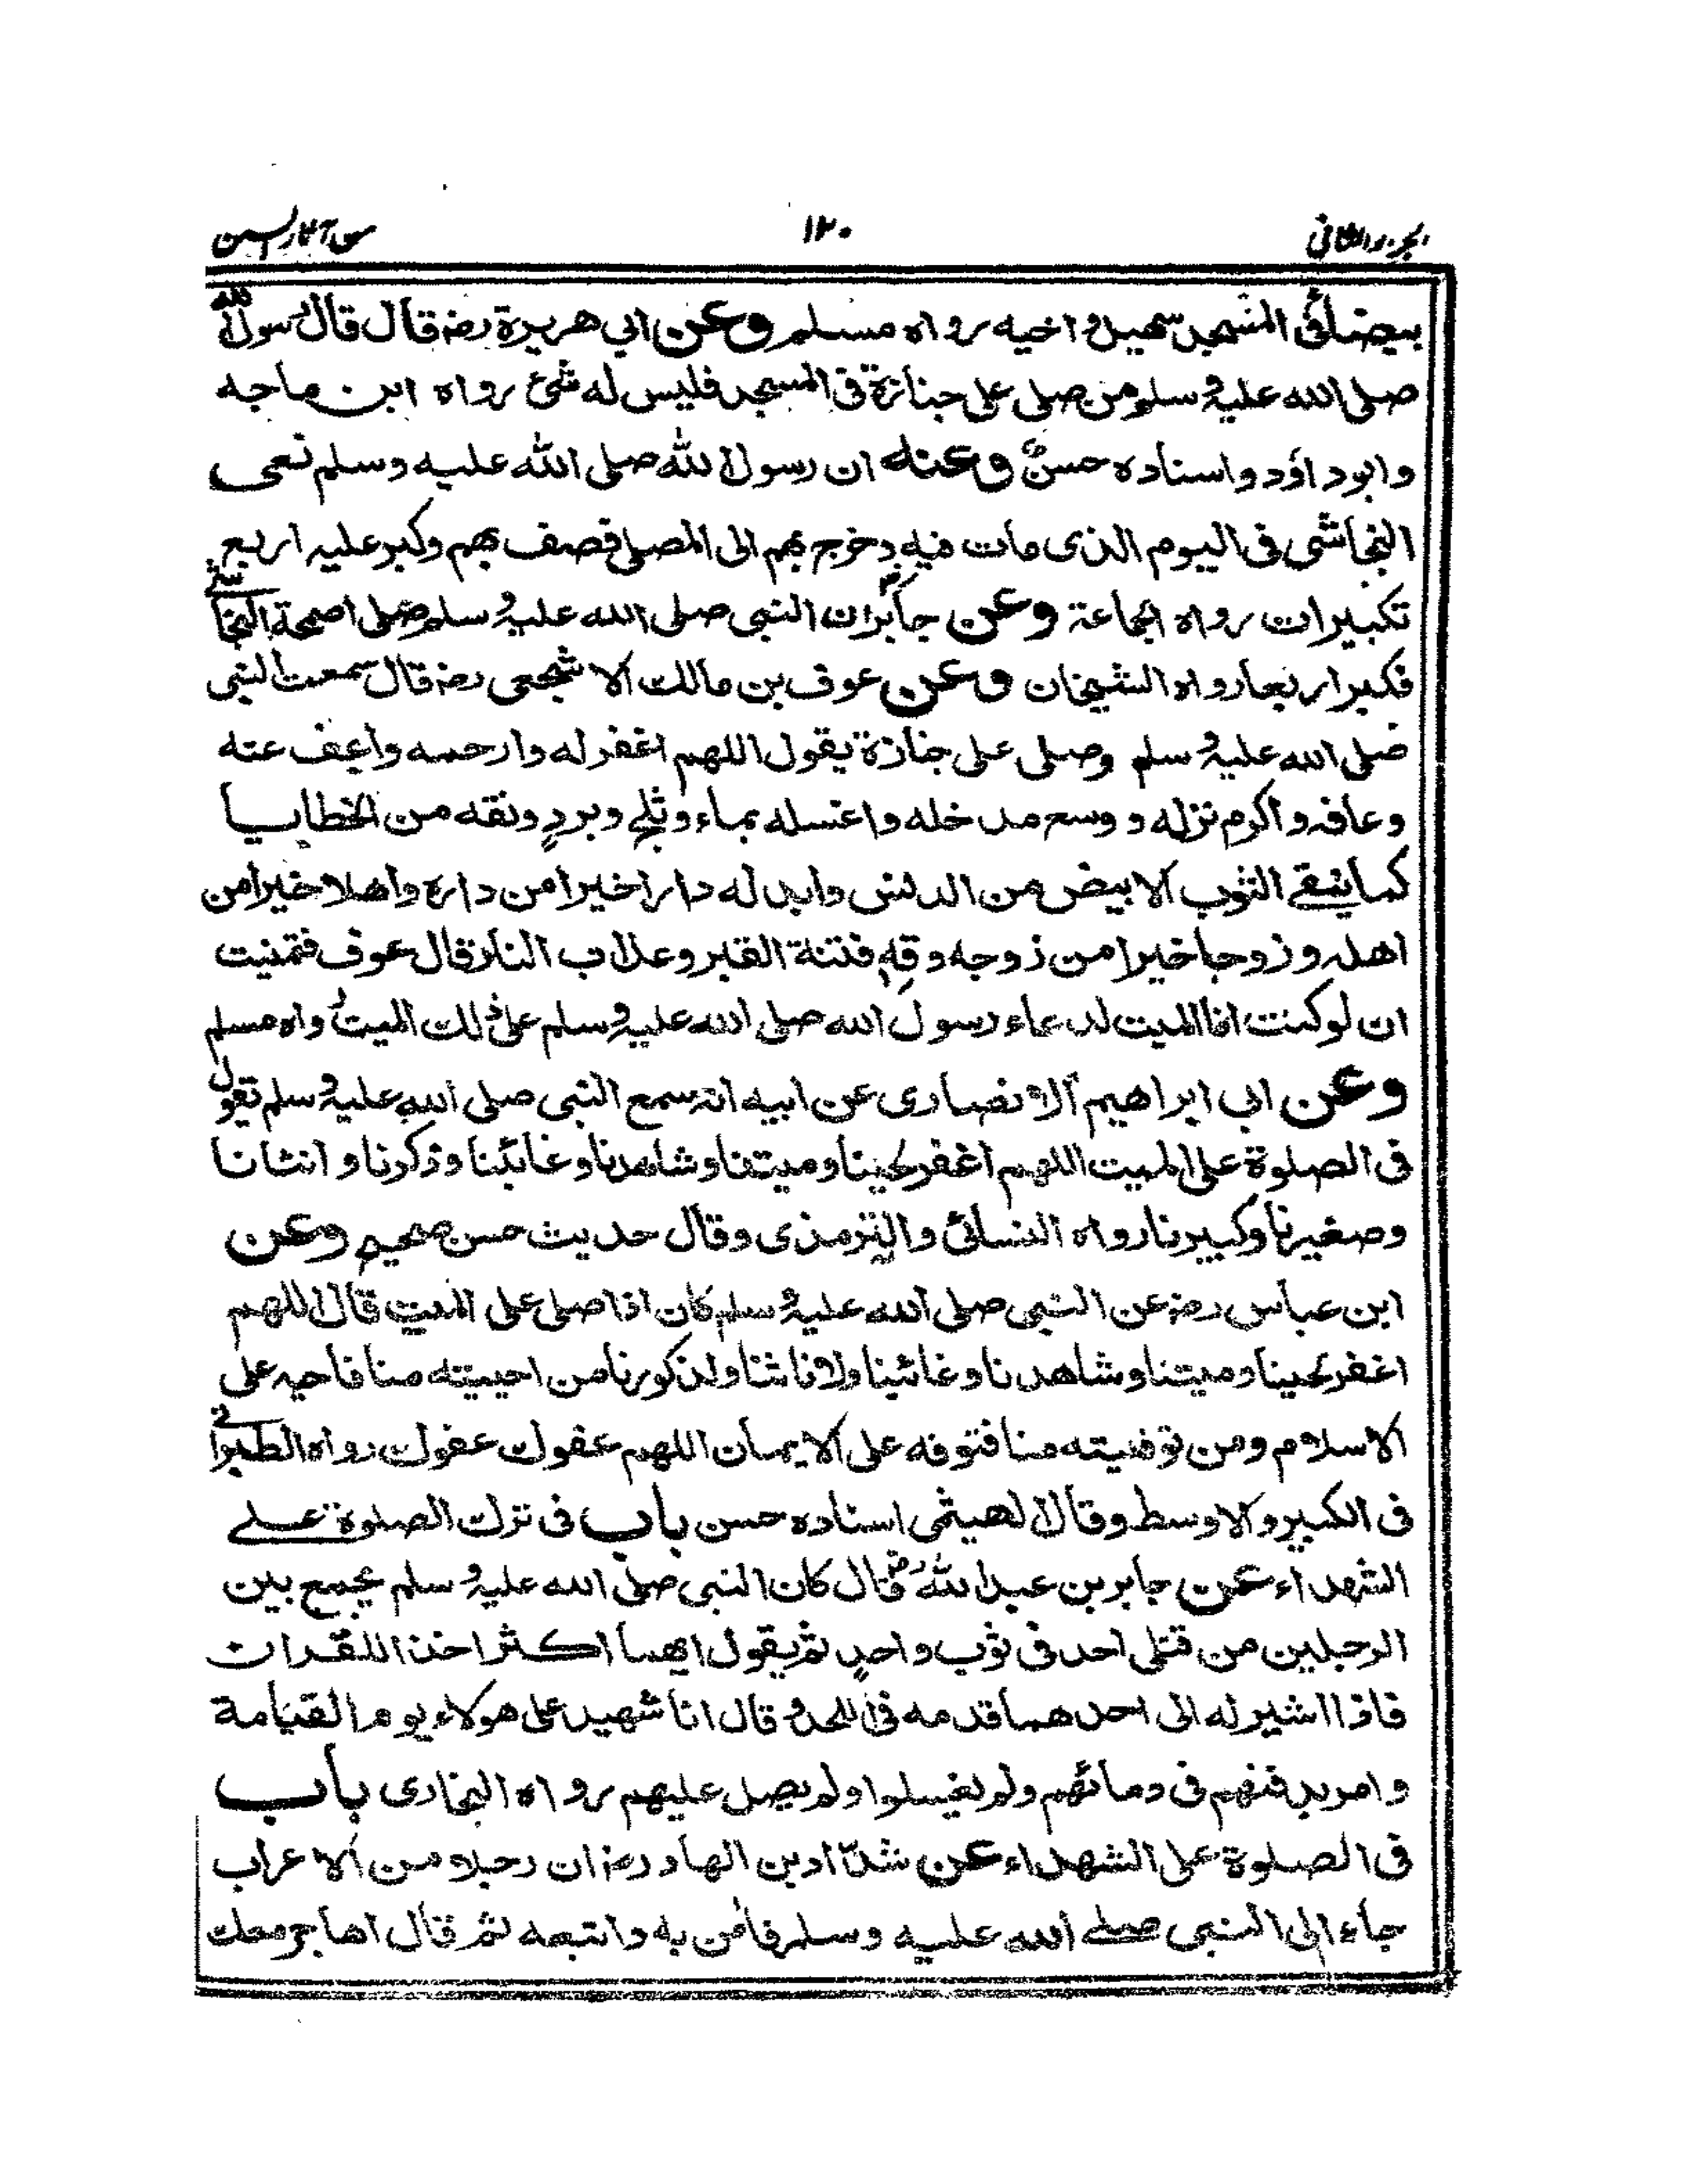 الجزء الثانى ١٢٠ من آثار السنن
بيضائى المسجد سهيل واخيه رواه مسلم وعن ابي هريرة رضـ قال قال رسول الله
صلى الله عليه وسلم من صلى على جنازة فى المسجد فليس له شئ رواه ابن ماجه
وابو داؤد واسناده حسن وعنه ان رسول الله صلى الله عليه وسلم نعى
النجاشى فى اليوم الذى مات فيه وخرج بهم الى المصلى فصف بهم وكبر عليه اربع
تكبيرات رواه الجماعة وعن جابرؓ ان النبى صلى الله عليه وسلم صلى على اصحمة النجاشى
فكبر اربعا رواه الشيخان وعن عوف بن مالك الاشجعى رضـ قال سمعت النبى
صلى الله عليه وسلم وصلى على جنازة يقول اللهم اغفر له وارحمه واعف عنه
وعافه واكرم نزله ووسع مدخله واغسله بماء وثلج وبردٍ ونقه من الخطايا
كما ينقے الثوب الابيض من الدنس وابدله دارا خيرا من داره واهلا خيرا من
اهله وزوجا خيرا من زوجه وقهِ فتنة القبر وعذاب النار قال عوف فتمنيت
ان لو كنت انا الميت لدعاء رسول الله صلى الله عليه وسلم على ذلك الميت رواه مسلم
وعن ابى ابراهيم الانصارى عن ابيه انه سمع النبى صلى الله عليه وسلم يقول
فى الصلوة على الميت اللهم اغفر لحينا وميتنا وشاهدنا وغائبنا وذكرنا وانثانا
وصغيرنا وكبيرنا رواه النسائى والترمذى وقال حديث حسن صحيح وعن
ابن عباس رضـ عن النبى صلى الله عليه وسلم كان اذا صلى على الميت قال اللهم
اغفر لحينا وميتنا وشاهدنا وغائبنا ولاناثنا ولذكورنا من احييته منا فاحيه على
الاسلام ومن توفيته منا فتوفه على الايمان اللهم عفوك عفوك رواه الطبرانى
فى الكبير والاوسط وقال الهيثمى اسناده حسن باب فى ترك الصلوة علے
الشهداء عن جابر بن عبد اللهؓ قال كان النبى صلى الله عليه وسلم يجمع بين
الرجلين من قتلى احد فى ثوب واحدٍ ثم يقول ايهما اكثر اخذا للقران
فاذا اشير له الى احدهما قدمه فى اللحد وقال انا شهيد على هولاء يوم القيامة
وامر بدفنهم فى دمائهم ولم يغسلوا ولم يصل عليهم رواه البخارى باب
فى الصلوة على الشهداء عن شدّاد بن الهاد رضـ ان رجلا من الاعراب
جاء الى النبى صلے الله عليه وسلم فأمن به واتبعه ثم قال اهاجر معك